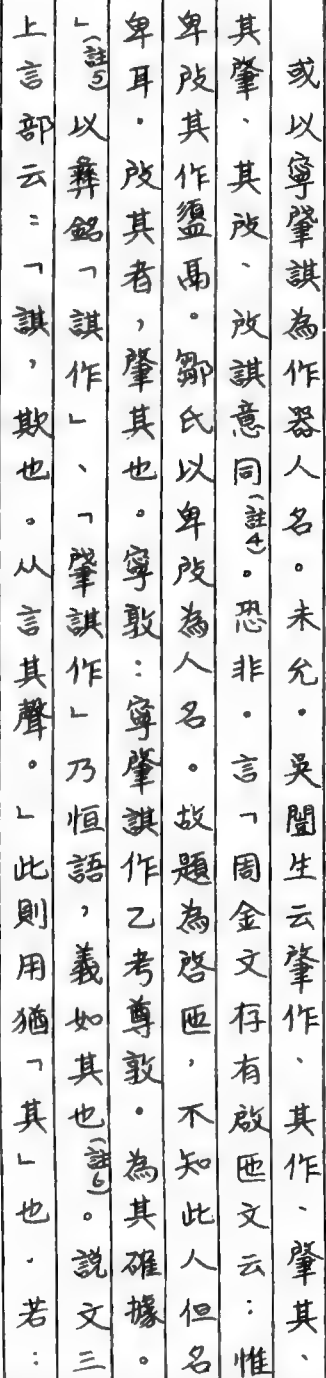 或以寧肈諆為作器人名。未允。吳闓生云肈作、其作、肈其、
其肈、其攺、攺諆意同(註4)。恐非。言「周金文存有啟匜文云：惟
卑攺其作盨鬲。鄒氏以卑攺為人名。故題為啓匜，不知此人但名
卑耳。攺其者，肈其也。寧敦：寧肈諆作乙考尊敦。為其確據。
」(註5)以彝銘「諆作」、「肈諆作」乃恒語，義如其也(註6)。說文三
上言部云：「諆，欺也。从言其聲。」此則用猶「其」也．若：